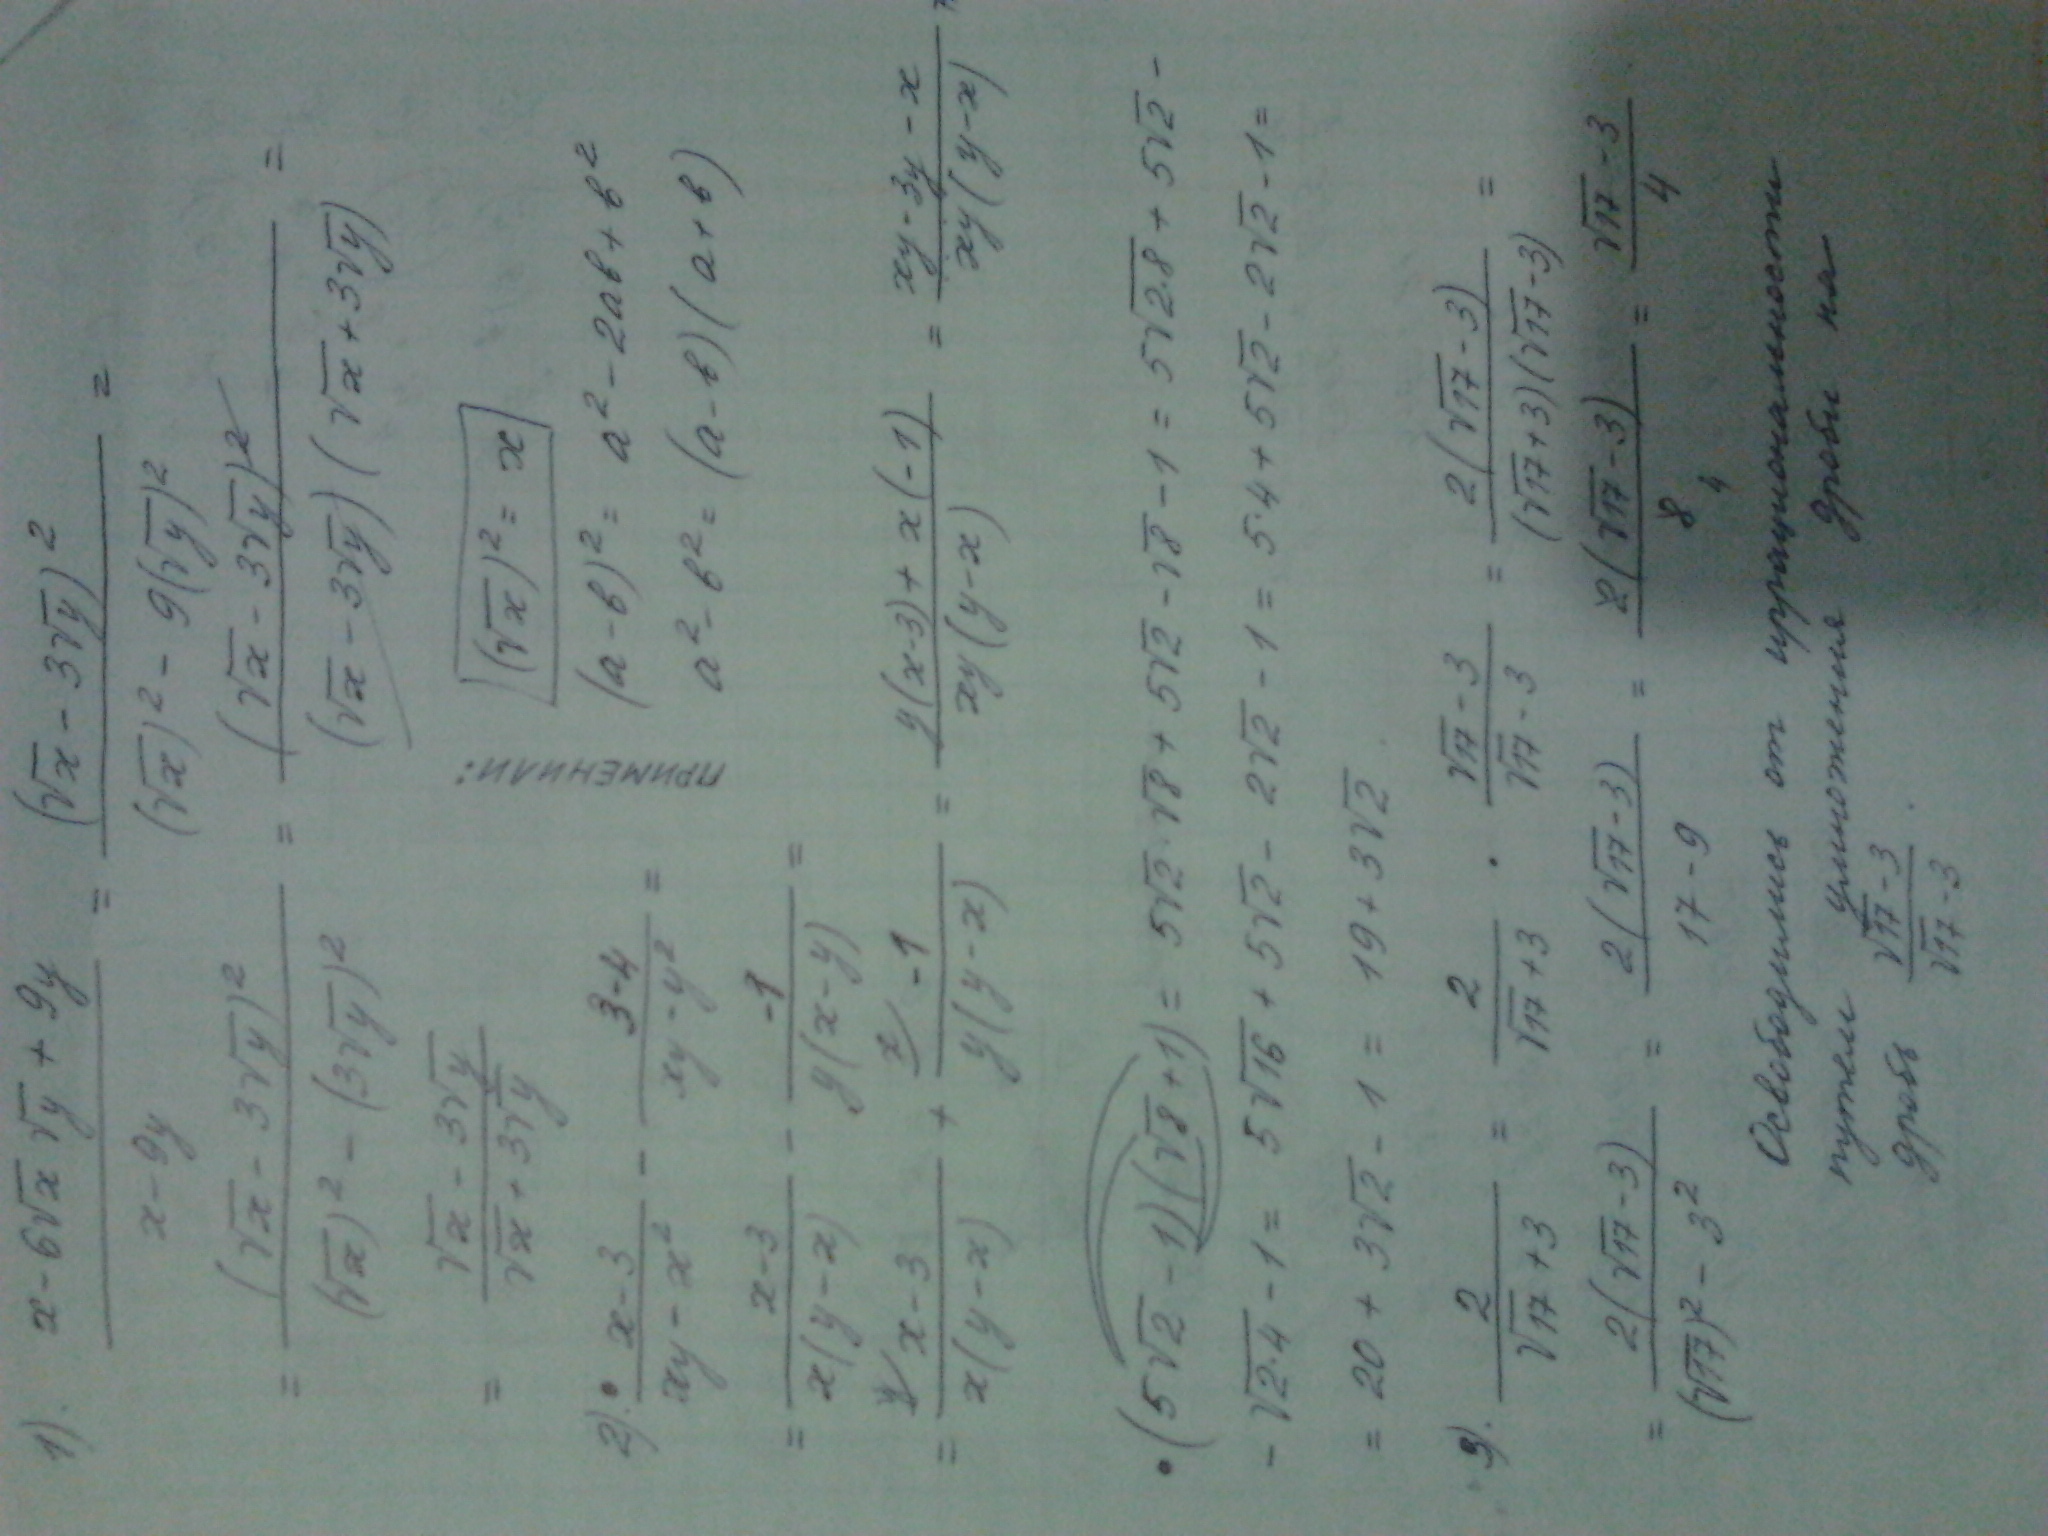 1). (x - 6√x √y + 9y)/(x - 9y) = (√x - 3√y)²/((√x)² - 9(√y)²) =
= (√x - 3√y)²/((√x)² - (3√y)²) = (√x - 3√y)²/((√x - 3√y)(√x + 3√y)) =
= (√x - 3√y)/(√x + 3√y)
ПРИМЕНИЛИ:
(√x)² = x
(a - b)² = a² - 2ab + b²
a² - b² = (a - b)(a + b)
2). • (x - 3)/(xy - x²) - (3 - 4)/(xy - y²) =
= (x - 3)/(x(y - x)) - (-1)/(y(x - y)) =
= (x - 3)/(x(y - x)) + (-1)/(y(y - x)) = (y(x - 3) + x(-1))/(xy(y - x)) = (xy - 3y - x)/(xy(y - x))
• (5√2 - 1)(√8 + 1) = 5√2·√8 + 5√2 - √8 - 1 = 5√2·8 + 5√2 -
- √2·4 - 1 = 5√16 + 5√2 - 2√2 - 1 = 5·4 + 5√2 - 2√2 - 1 =
= 20 + 3√2 - 1 = 19 + 3√2.
3). 2/(√17 + 3) = 2/(√17 + 3) · (√17 - 3)/(√17 - 3) = 2(√17 - 3)/((√17 + 3)(√17 - 3)) =
= 2(√17 - 3)/((√17)² - 3²) = 2(√17 - 3)/(17 - 9) = 2(√17 - 3)/8 4 = (√17 - 3)/4.
Освободились от иррациональности
путем умножения дроби на
дробь (√17 - 3)/(√17 - 3).